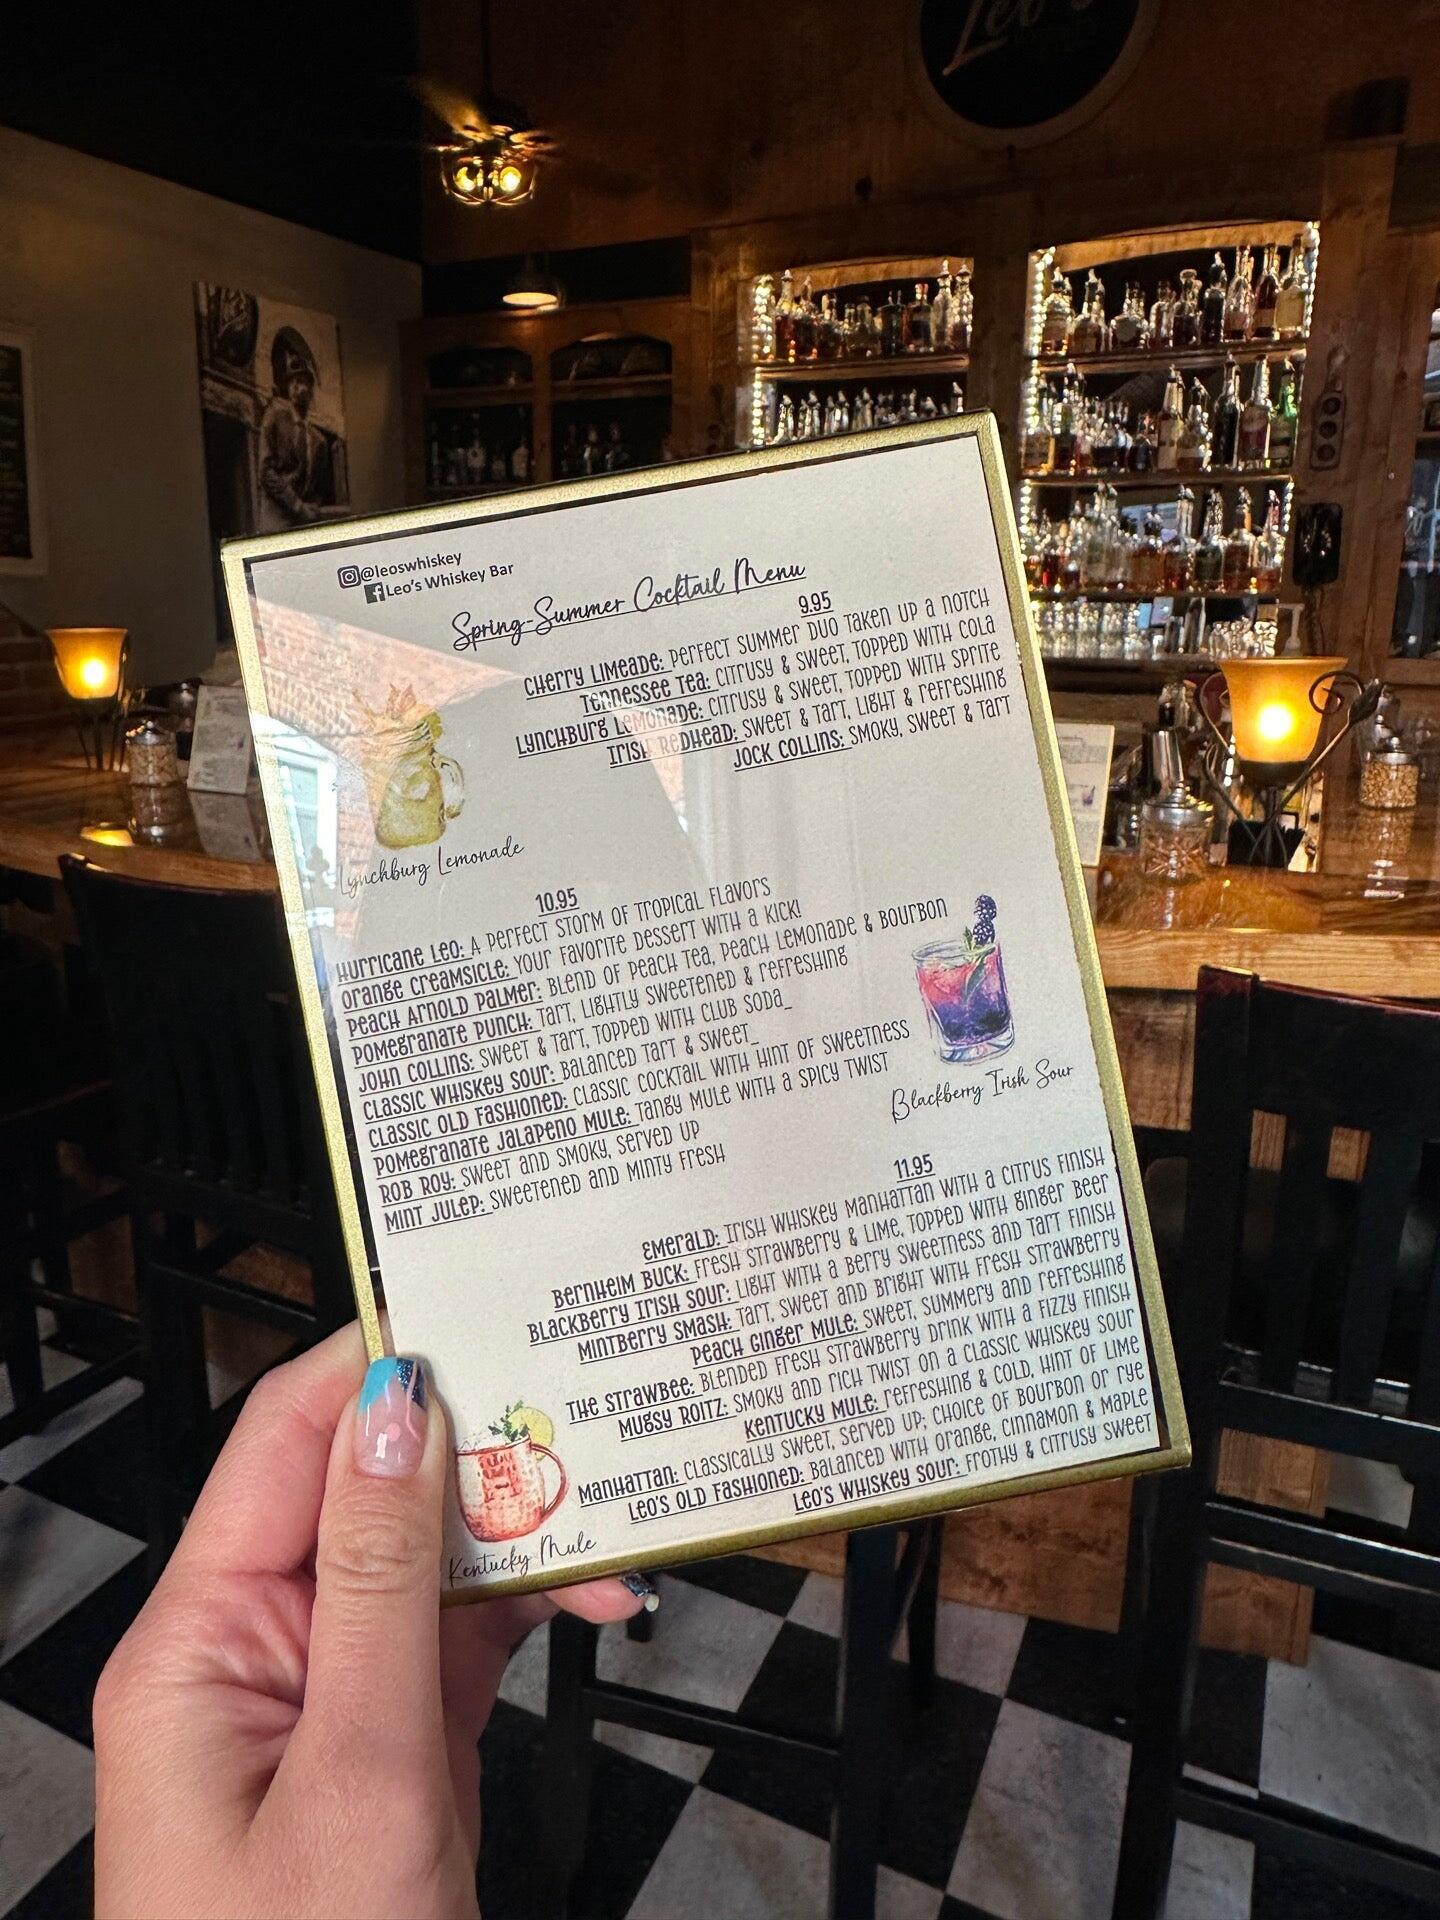 Leo's
@leoswhiskey
Leo's Whiskey Bar
Spring-Summer Cocktail Menu
9.95
CHERRY LIMEADE: PERFECT SUMMER DUO TAKEN UP A NOTCH
TENNESSEE TEA: CITRUSY & SWEET, TOPPED WITH COLA
LYNCHBURG LEMONADE: CITRUSY & SWEET, TOPPED WITH SPRITE
IRISH REDHEAD: SWEET & TART, LIGHT & REFRESHING
JOCK COLLINS: SMOKY, SWEET & TART
Lynchburg Lemonade
10.95
HURRICANE LEO: A PERFECT STORM OF TROPICAL FLAVORS
ORANGE CREAMSICLE: YOUR FAVORITE DESSERT WITH A KICK!
PEACH ARNOLD PALMER: BLEND OF PEACH TEA, PEACH LEMONADE & BOURBON
POMEGRANATE PUNCH: TART, LIGHTLY SWEETENED & REFRESHING
JOHN COLLINS: SWEET & TART, TOPPED WITH CLUB SODA_
CLASSIC WHISKEY SOUR: BALANCED TART & SWEET_
CLASSIC OLD FASHIONED: CLASSIC COCKTAIL WITH HINT OF SWEETNESS
POMEGRANATE JALAPENO MULE: TANGY MULE WITH A SPICY TWIST
ROB ROY: SWEET AND SMOKY, SERVED UP
MINT JULEP: SWEETENED AND MINTY FRESH
Blackberry Irish Sour
11.95
EMERALD: IRISH WHISKEY MANHATTAN WITH A CITRUS FINISH
BERNHEIM BUCK: FRESH STRAWBERRY & LIME, TOPPED WITH GINGER BEER
BLACKBERRY IRISH SOUR: LIGHT WITH A BERRY SWEETNESS AND TART FINISH
MINTBERRY SMASH: TART, SWEET AND BRIGHT WITH FRESH STRAWBERRY
PEACH GINGER MULE: SWEET, SUMMERY AND REFRESHING
THE STRAWBEE: BLENDED FRESH STRAWBERRY DRINK WITH A FIZZY FINISH
MUGSY ROITZ: SMOKY AND RICH TWIST ON A CLASSIC WHISKEY SOUR
KENTUCKY MULE: REFRESHING & COLD, HINT OF LIME
MANHATTAN: CLASSICALLY SWEET, SERVED UP; CHOICE OF BOURBON OR RYE
LEO'S OLD FASHIONED: BALANCED WITH ORANGE, CINNAMON & MAPLE
LEO'S WHISKEY SOUR: FROTHY & CITRUSY SWEET
Kentucky Mule